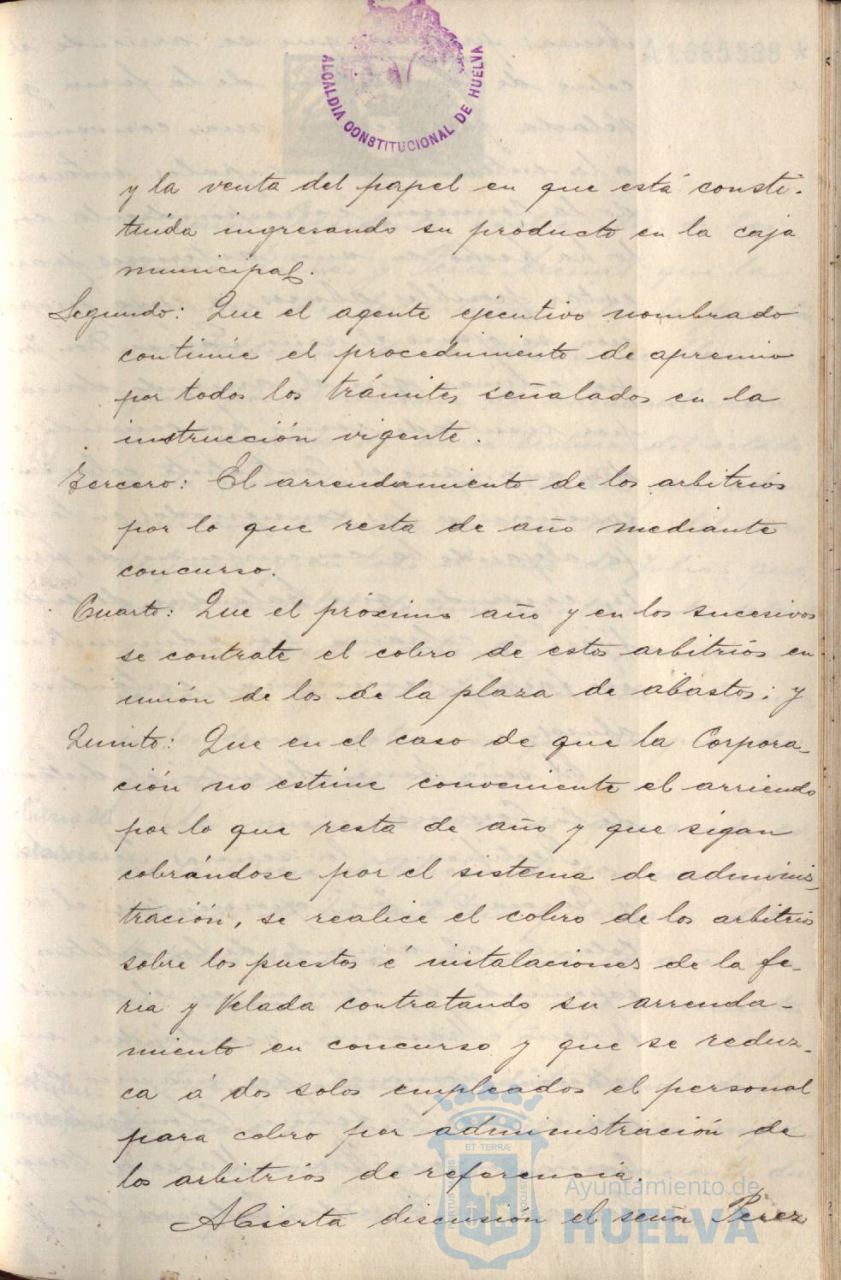 ALCALDIA CONSTITUCIONAL DE HUELVA
y la venta del papel en que está consti-
tuida ingresando su producto en la caja
municipal.
Segundo: Que el agente ejecutivo nombrado
continúe el procedimiento de apremio
por todos los trámites señalados en la
instrucción vigente.
Tercero: El arrendamiento de los arbitrios
por lo que resta de año mediante
concurso.
Cuarto: Que el próximo año y en los sucesivos
se contrate el cobro de estos arbitrios en
unión de los de la plaza de abastos; y
Quinto: Que en el caso de que la Corpora-
ción no estime conveniente el arriendo
por lo que resta de año y que sigan
cobrándose por el sistema de adminis-
tración, se realice el cobro de los arbitrios
sobre los puestos é instalaciones de la fe-
ria y Velada contratando su arrenda-
miento en concurso y que se reduz-
ca á dos solos empleados el personal
para cobro por administración de
los arbitrios de referencia.
Abierta discusión el señor Perez
ET TERRÆ
Ayuntamiento de
HUELVA